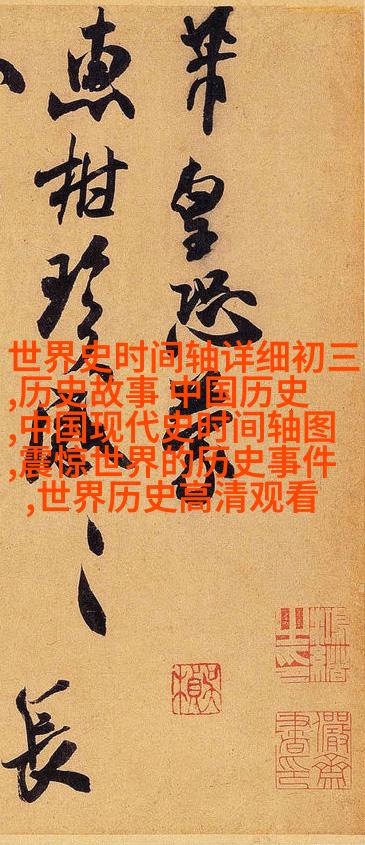 芾皇恐蒙
惠柑珍感、長
世界史时间轴详细初三
,历史故事 中国历史
,中国现代史时间轴图
,震惊世界的历史事件
,世界历史高清观看